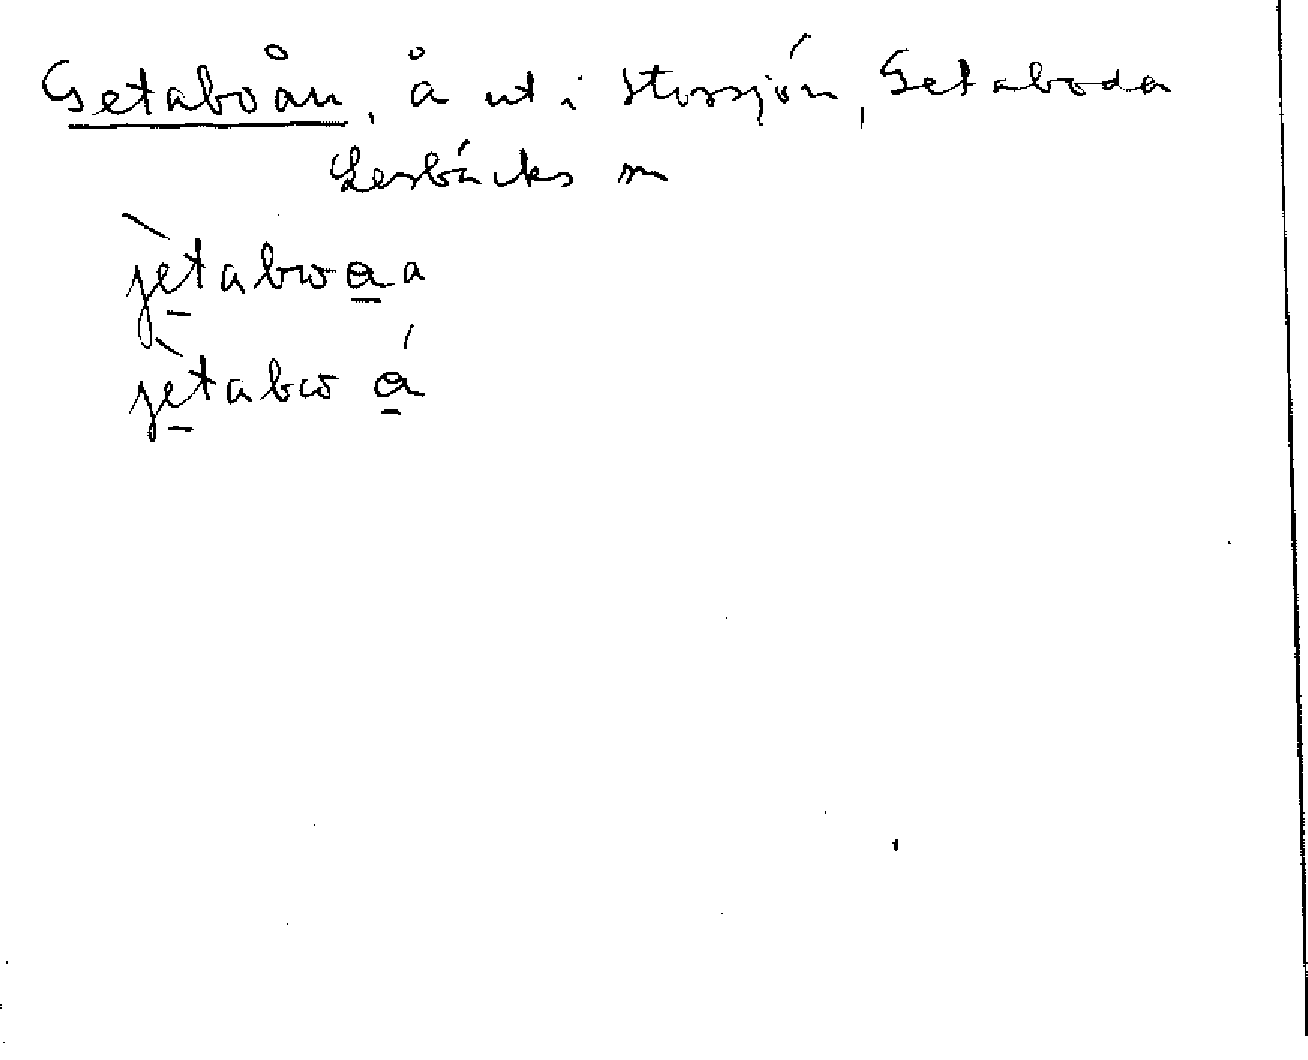 Getaboån, å ut i Storsjön, Getaboda
Lerbäcks sn
jètabωa̱a
jètabω á̱